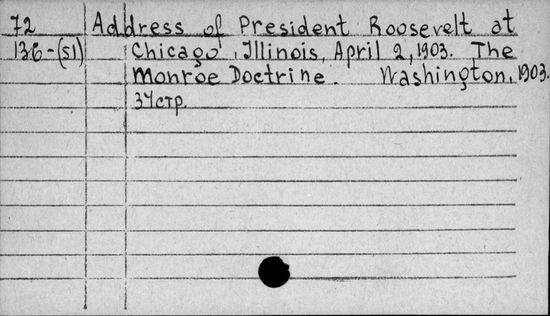 72 Address of President Roosevelt at
136-(51) Chicago, Illinois, April 2, 1903. The
Monroe Doctrine. Washington, 1903.
34стр.